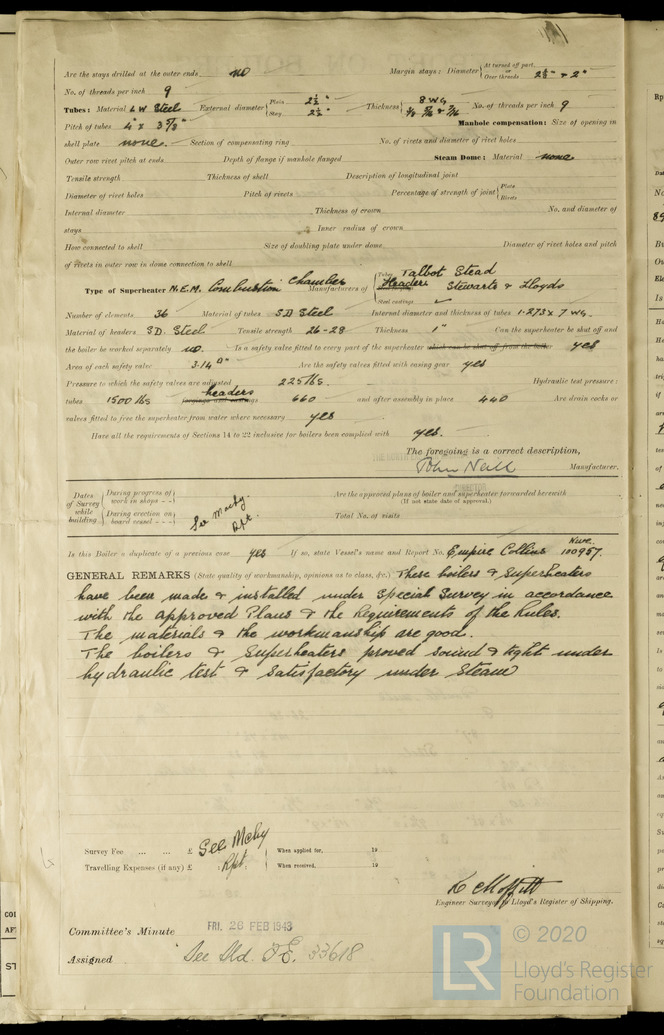 Are the stays drilled at the outer ends no Margin stays: Diameter {At turned off part, or Over threads 2 1/8" & 2"
No. of threads per inch 9
Tubes: Material L W Steel External diameter {Plain 2½" Stay 2½" Thickness {8 WG 5/16 No. of threads per inch 9
Pitch of tubes 4" x 3 7/8" Manhole compensation: Size of opening in
shell plate none. Section of compensating ring No. of rivets and diameter of rivet holes
Outer row rivet pitch at ends Depth of flange if manhole flanged Steam Dome: Material none
Tensile strength Thickness of shell Description of longitudinal joint
Diameter of rivet holes Pitch of rivets Percentage of strength of joint {Plate Rivets
Internal diameter Thickness of crown No. and diameter of
stays Inner radius of crown
How connected to shell Size of doubling plate under dome Diameter of rivet holes and pitch
of rivets in outer row in dome connection to shell
Type of Superheater N.E.M. Combustion Chamber Manufacturers of {Tubes Talbot Stead Headers Stewarts & Lloyds Steel castings ✓
Number of elements 36 Material of tubes S D Steel Internal diameter and thickness of tubes 1.273 x 7 WG.
Material of headers S.D. Steel Tensile strength 26-28 Thickness 1" Can the superheater be shut off and
the boiler be worked separately no. Is a safety valve fitted to every part of the superheater which can be shut off from the boiler yes
Area of each safety valve 3.14 □" Are the safety valves fitted with easing gear yes
Pressure to which the safety valves are adjusted 225 lbs. Hydraulic test pressure:
tubes 1500 lbs headers 660 and after assembly in place 440 Are drain cocks or
valves fitted to free the superheater from water where necessary yes
Have all the requirements of Sections 14 to 22 inclusive for boilers been complied with yes.
The foregoing is a correct description,
John Neill Manufacturer.
DIRECTOR
Dates of Survey while building {During progress of work in shops - - During erection on board vessel - - - See Mchy. Rpt.
Are the approved plans of boiler and superheater forwarded herewith
(If not state date of approval.)
Total No. of visits
Is this Boiler a duplicate of a previous case yes If so, state Vessel's name and Report No. Empire Collins Nwc. 100957.
GENERAL REMARKS (State quality of workmanship, opinions as to class, &c.) These boilers & Superheaters
have been made & installed under Special Survey in accordance
with the approved Plans & the Requirements of the Rules.
The materials & the workmanship are good.
The boilers & Superheaters proved sound & tight under
hydraulic test & Satisfactory under Steam
Survey Fee ... ... £ See Mchy When applied for, 19
Travelling Expenses (if any) £ Rpt. When received, 19
Engineer Surveyor to Lloyd's Register of Shipping.
Committee's Minute FRI. 26 FEB 1943
Assigned See Sld. F.E. 33618
LR © 2020
Lloyd's Register
Foundation